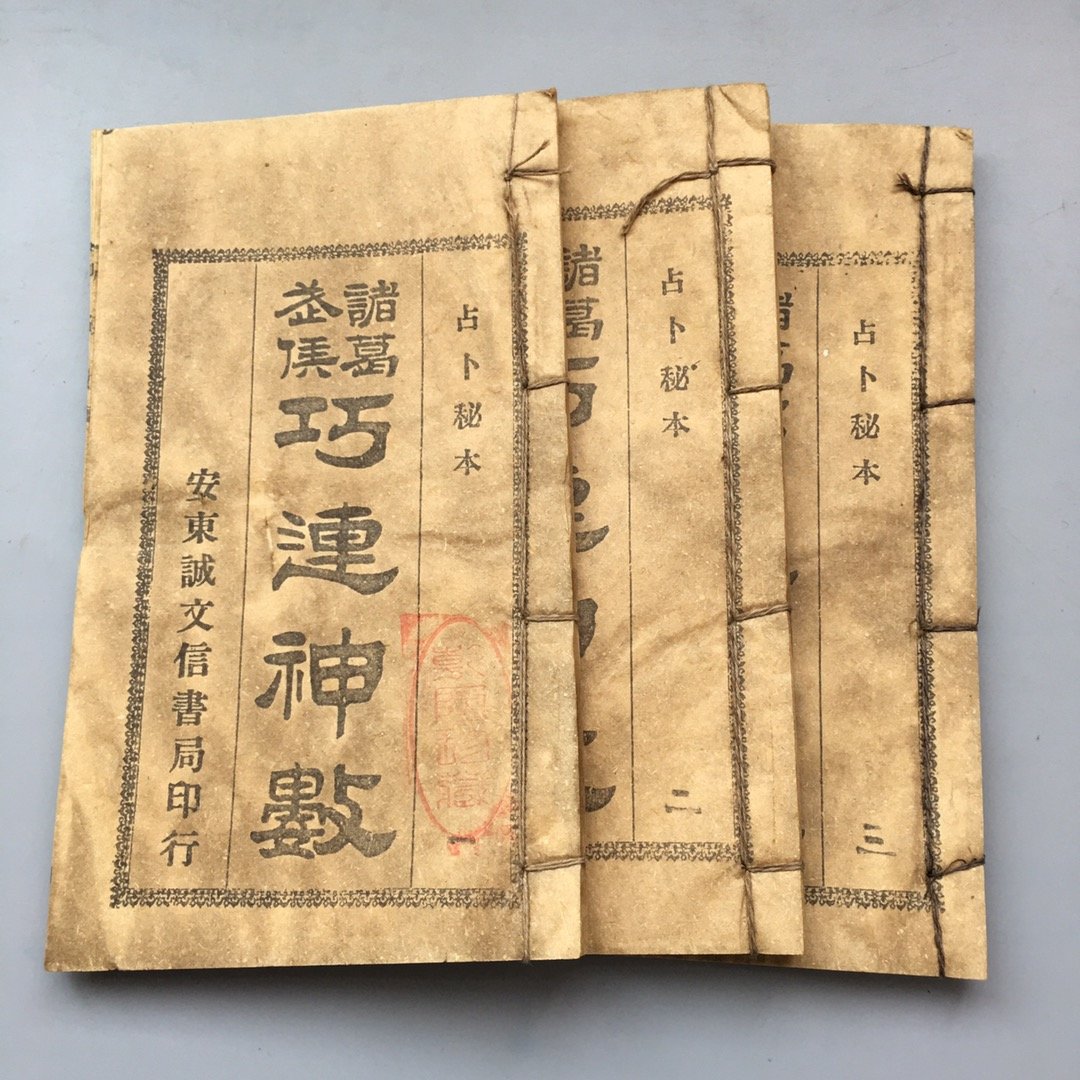 占卜秘本 一
諸葛
武侯
巧連神數
安東誠文信書局印行
占卜秘本 二
諸葛
占卜秘本 三